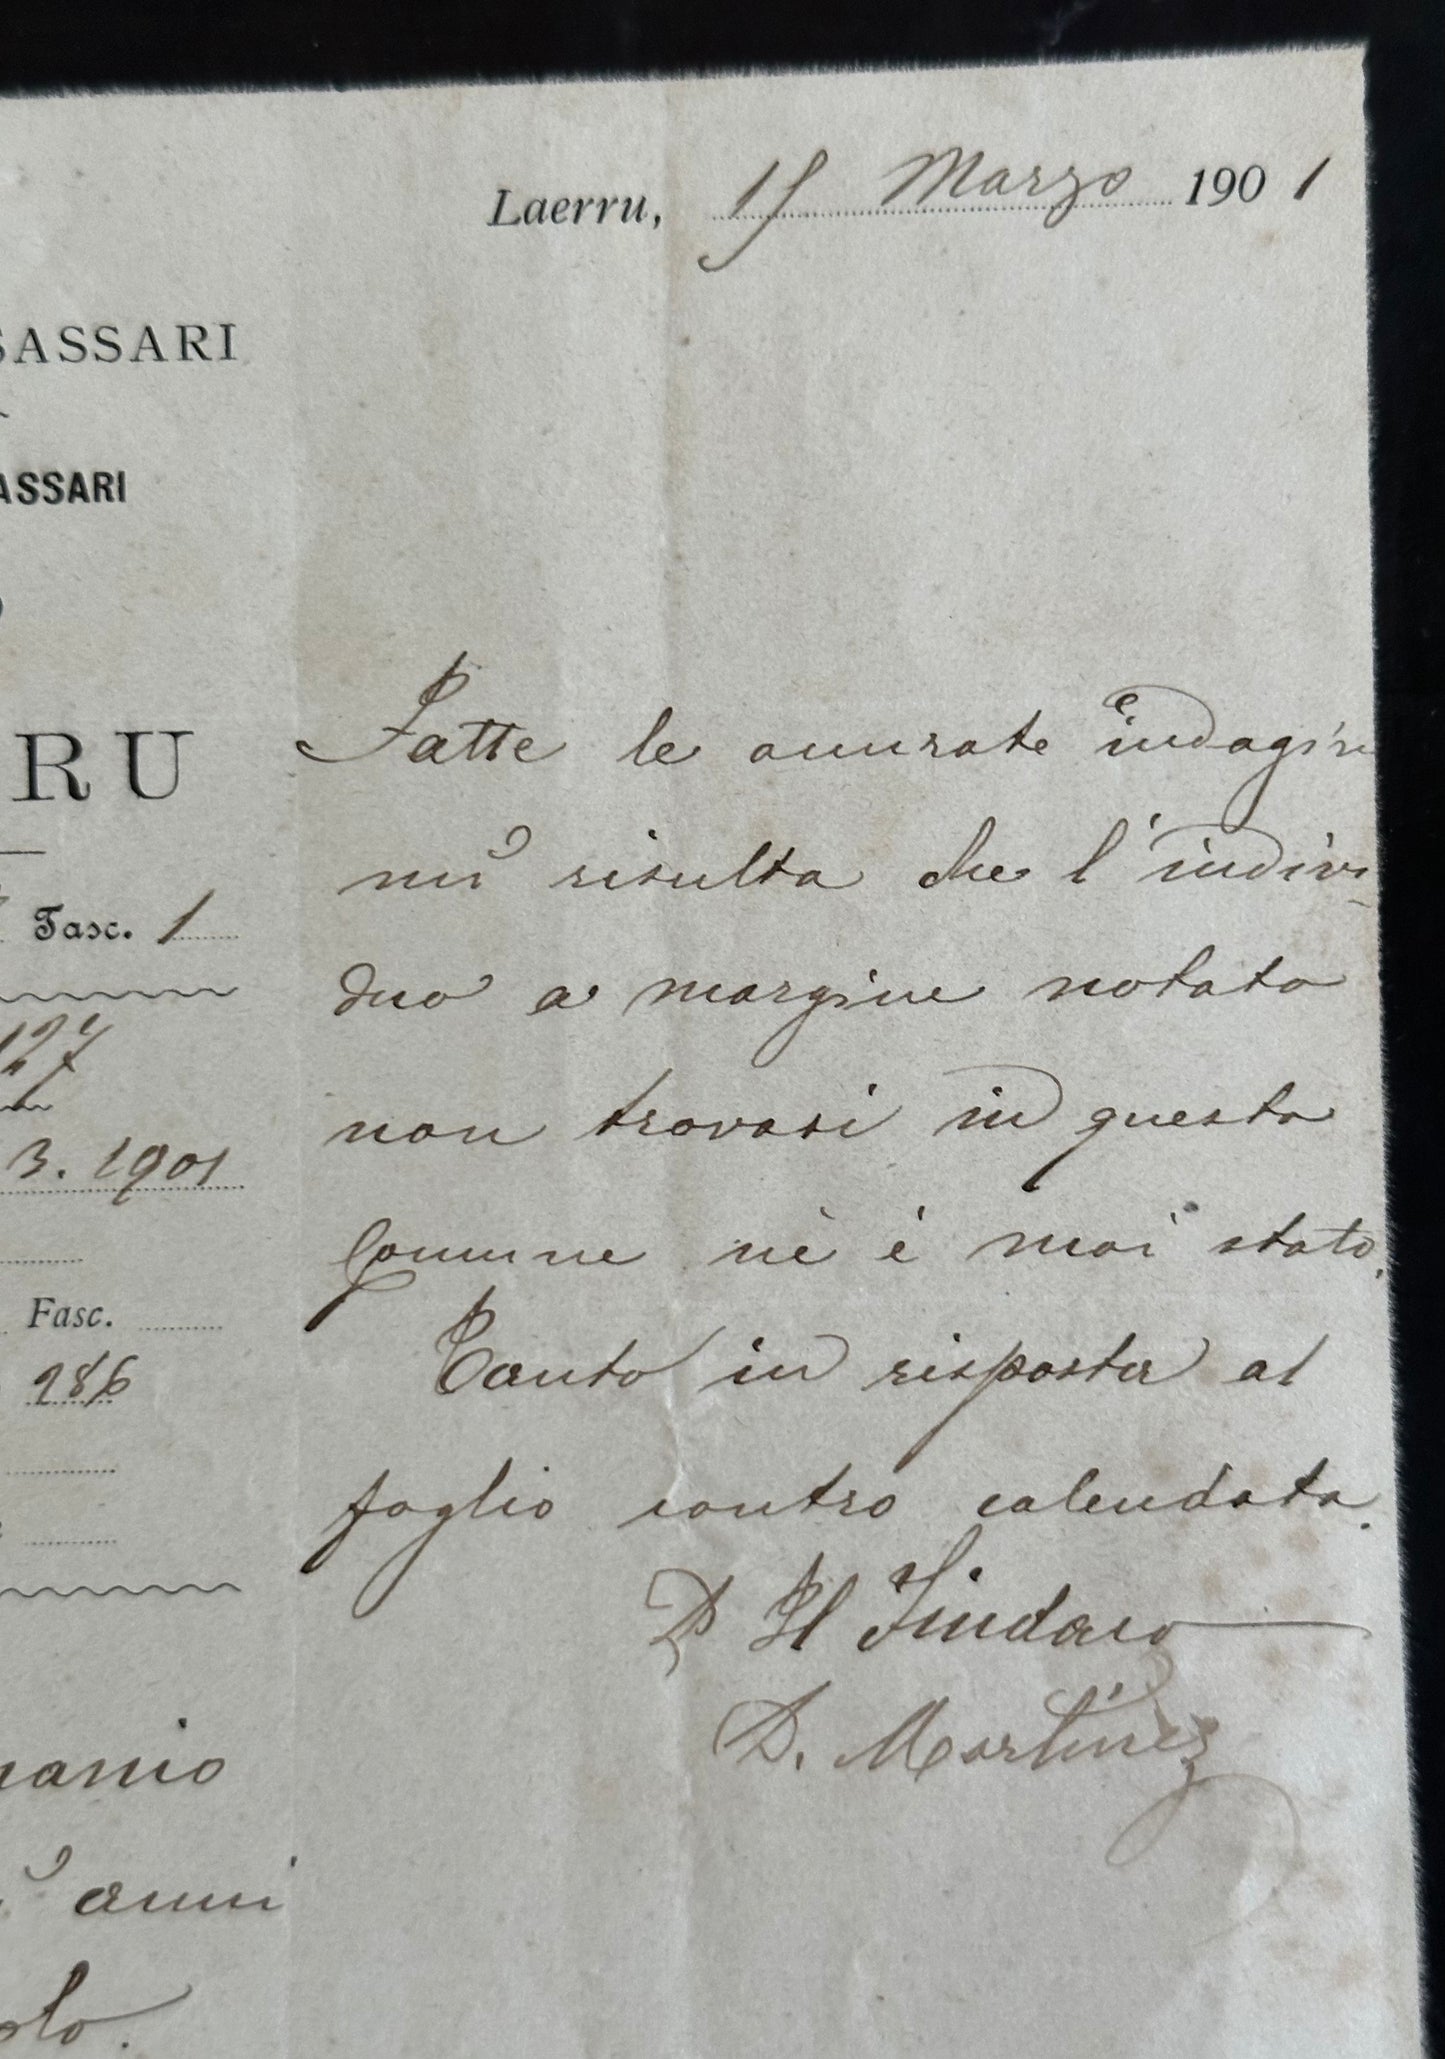 Laerru, 15 Marzo 1901
SASSARI
ASSARI
RU
Fasc. 1
127
3. 1901
Fasc.
286
anio
anni
olo.
Fatte le accurate indagini
mi risulta che l'indivi
duo a margine notato
non trovasi in questo
Comune nè è mai stato.
Tanto in risposta al
foglio contro calendato.
Il Sindaco
D. Martinez